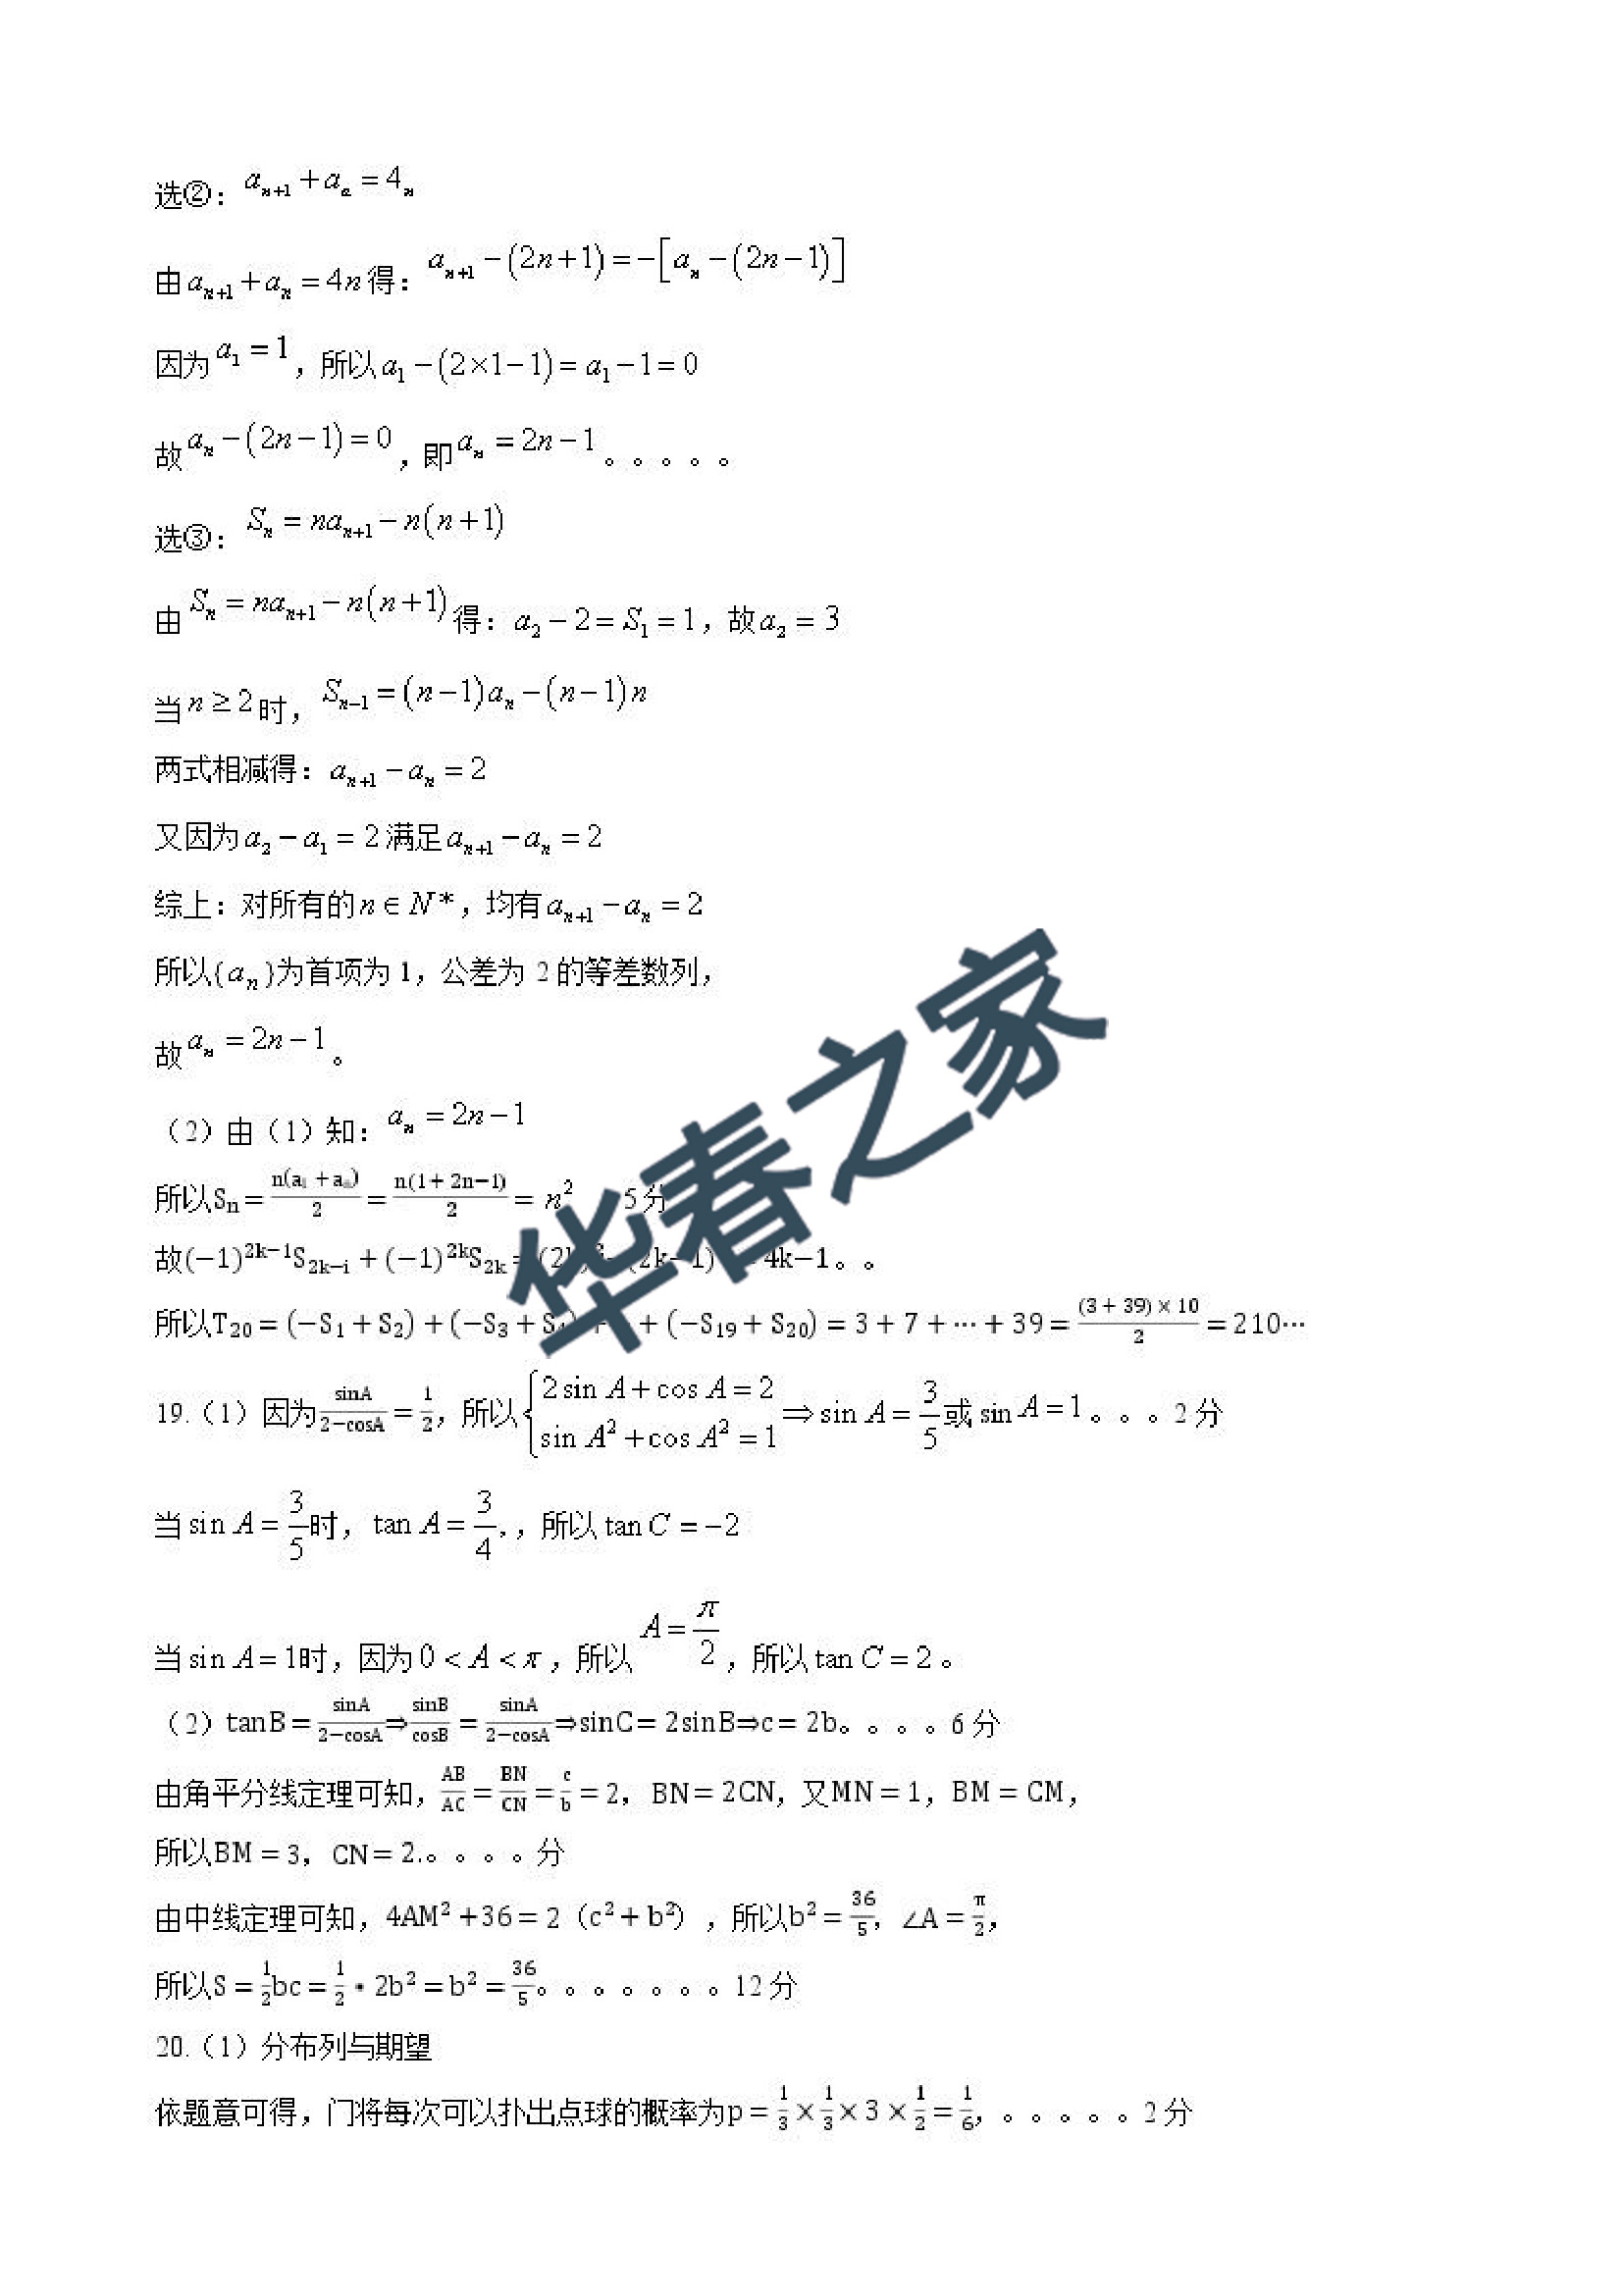 选②：aₙ₊₁+aₐ=4ₙ
由aₙ₊₁+aₙ=4n得：aₙ₊₁-(2n+1)=-[aₙ-(2n-1)]
因为a₁=1，所以a₁-(2×1-1)=a₁-1=0
故aₙ-(2n-1)=0，即aₙ=2n-1。。。。。
选③：Sₙ=naₙ₊₁-n(n+1)
由Sₙ=naₙ₊₁-n(n+1)得：a₂-2=S₁=1，故a₂=3
当n≥2时，Sₙ₋₁=(n-1)aₙ-(n-1)n
两式相减得：aₙ₊₁-aₙ=2
又因为a₂-a₁=2满足aₙ₊₁-aₙ=2
综上：对所有的n∈N*，均有aₙ₊₁-aₙ=2
所以{aₙ}为首项为1，公差为2的等差数列，
故aₙ=2n-1。
（2）由（1）知：aₙ=2n-1
所以Sn=n(a₁+aₙ)/2=n(1+2n-1)/2=n² 5分
故(-1)^(2k-1)S_(2k-i)+(-1)^(2k)S_(2k)= 4k-1。。
所以T₂₀=(-S₁+S₂)+(-S₃+S₄)+ +(-S₁₉+S₂₀)=3+7+···+39=(3+39)×10/2=210···
19.（1）因为sinA/(2-cosA)=1/2，所以{2sin A+cos A=2 sin A²+cos A²=1⇒sin A=3/5或sin A=1。。。2分
当sin A=3/5时，tan A=3/4.，所以tan C=-2
当sin A=1时，因为0<A<π，所以A=π/2，所以tan C=2。
（2）tanB=sinA/(2-cosA)⇒sinB/cosB=sinA/(2-cosA)⇒sinC=2sinB⇒c=2b。。。。6分
由角平分线定理可知，AB/AC=BN/CN=c/b=2，BN=2CN，又MN=1，BM=CM，
所以BM=3，CN=2.。。。。分
由中线定理可知，4AM²+36=2（c²+b²），所以b²=36/5，∠A=π/2，
所以S=1/2bc=1/2·2b²=b²=36/5。。。。。。。12分
20.（1）分布列与期望
依题意可得，门将每次可以扑出点球的概率为p=1/3×1/3×3×1/2=1/6，。。。。。2分
华春之家